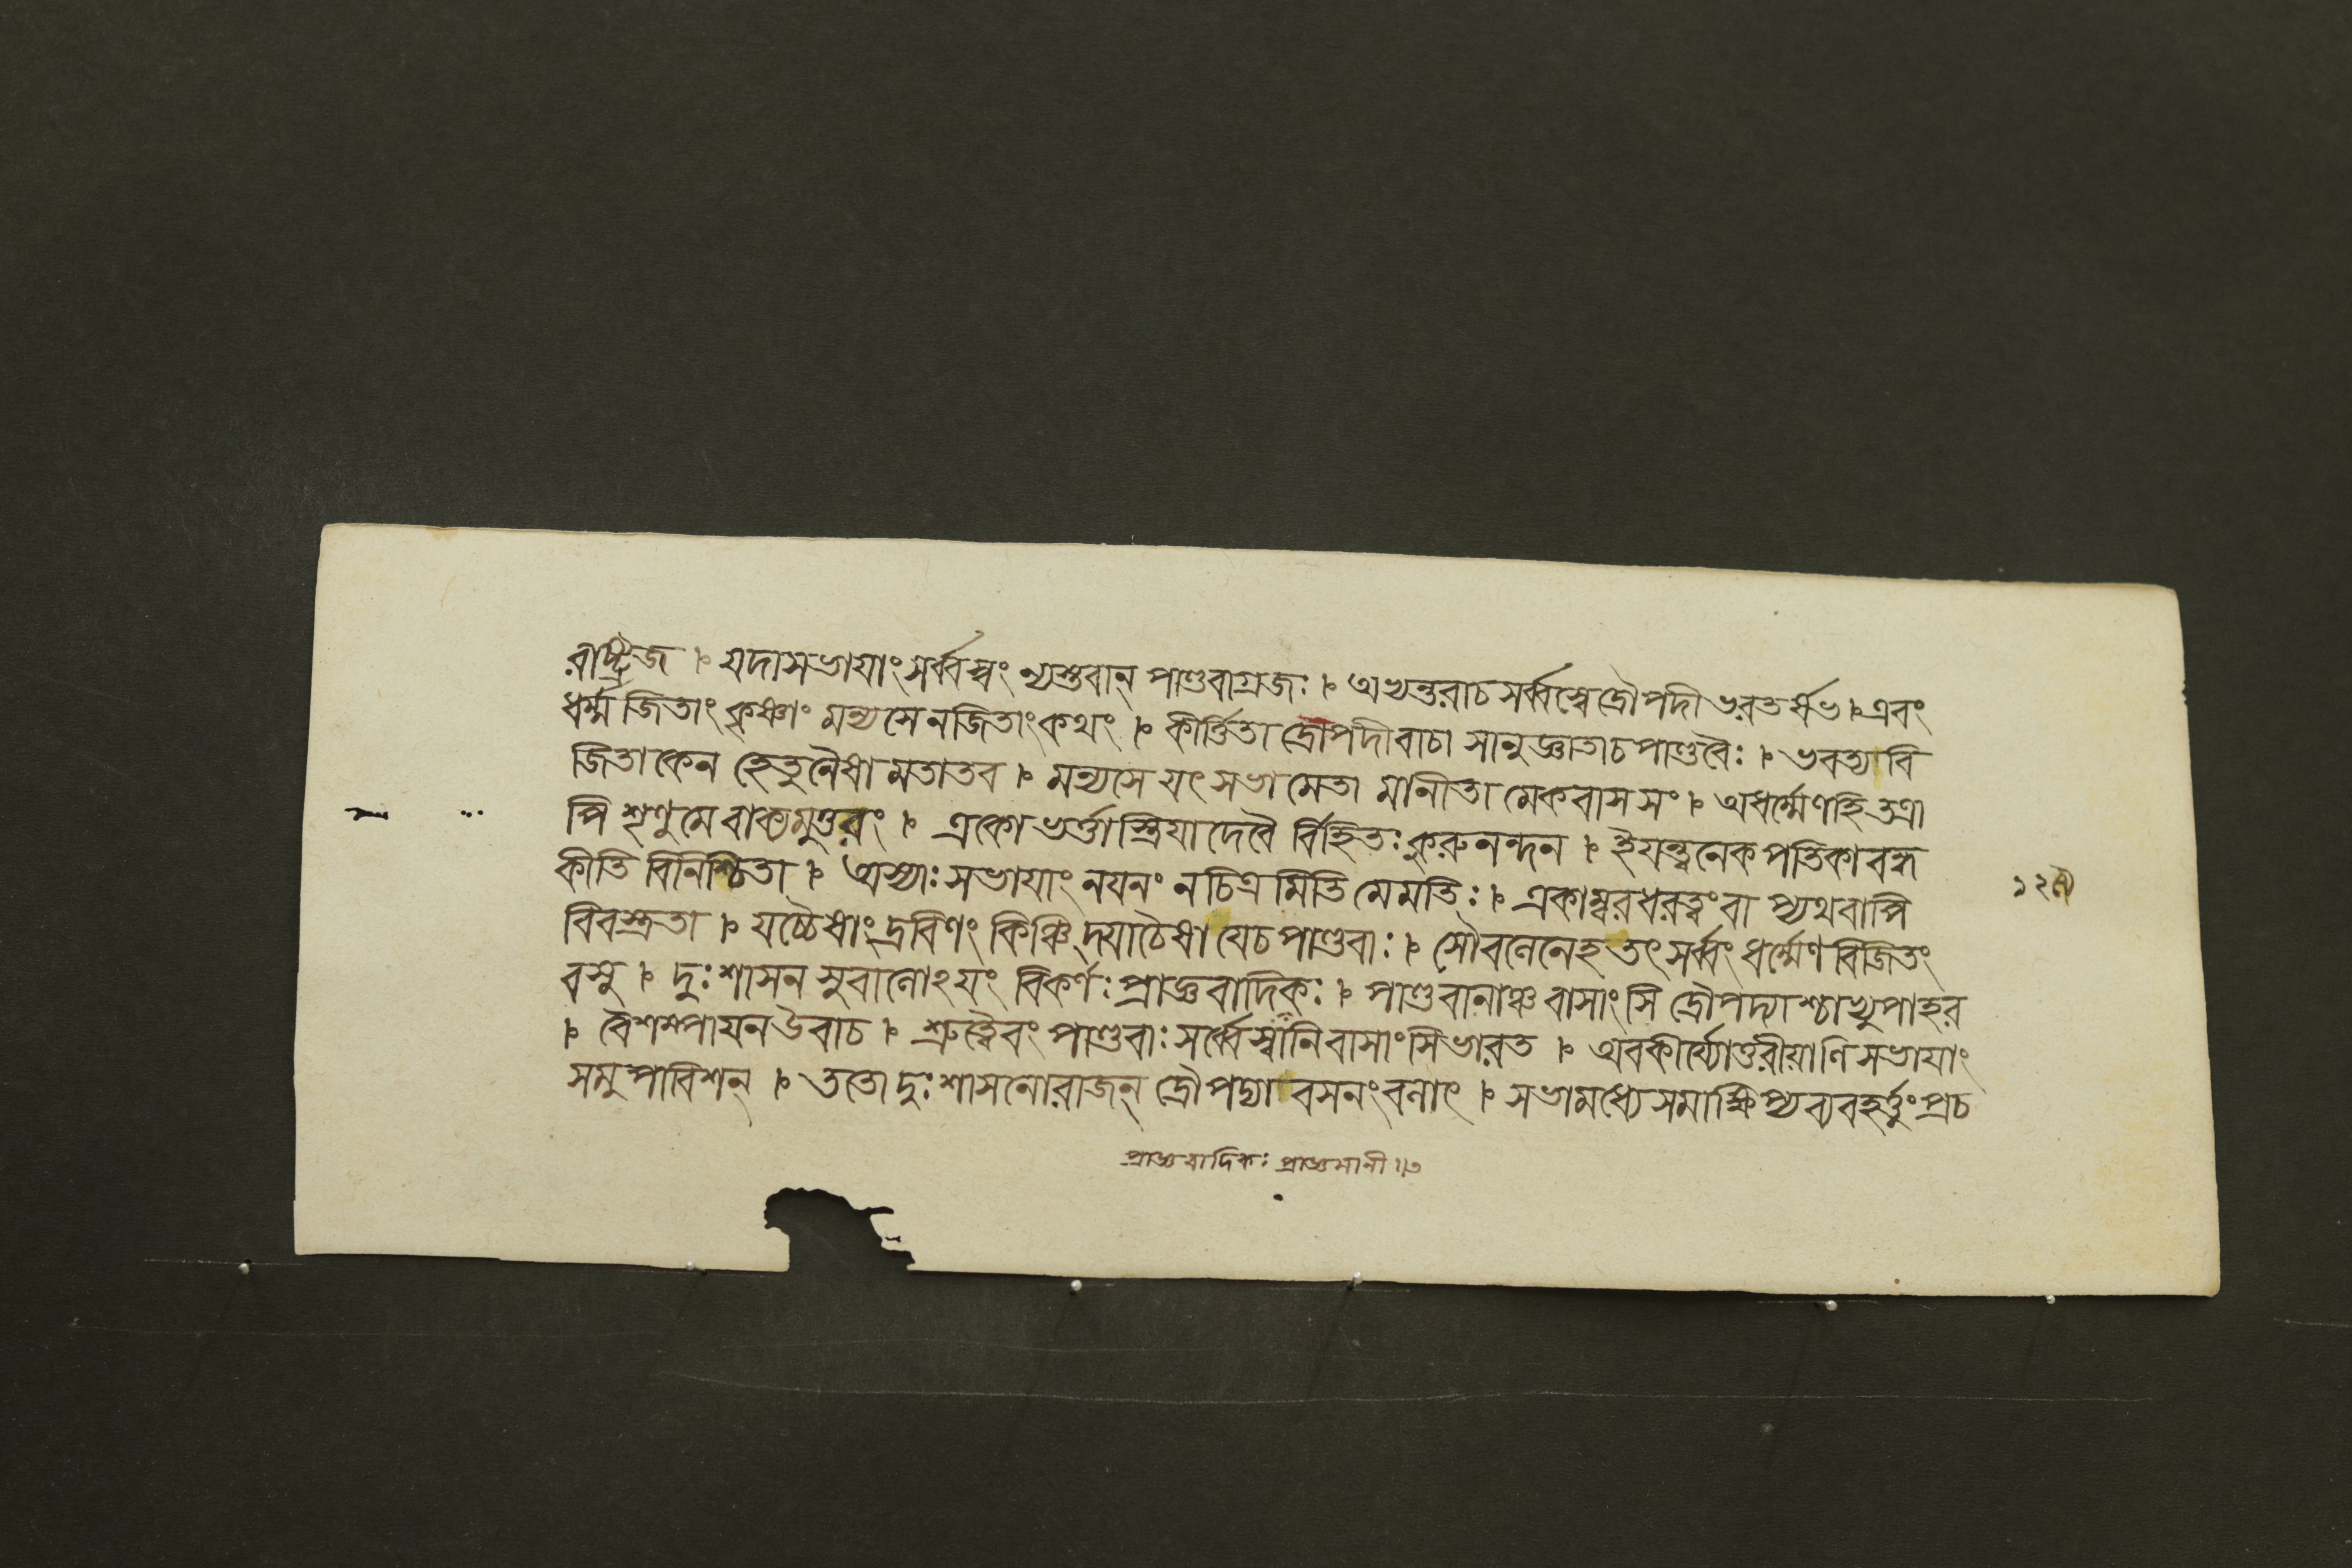 রাষ্ট্রজ । যদাসভাযাং সর্ব্বস্বং ন্যস্তবান্ পাণ্ডবাগ্রজঃ । অভ্যন্তরাচসর্ব্বস্বেদ্রৌপদীভরতর্ষভ । এবং
ধর্ম্মজিতাং কৃষ্ণাং মন্যসেনজিতাংকথং । কীর্ত্তিতাদ্রৌপদীবাচা সানুজ্ঞাতাচপাণ্ডবৈঃ । ভবত্যবি
জিতাকেন হেতুনৈষা মতাতব । মন্যসে যৎ সভামেতা মানীতা মেকবাসসং । অধর্ম্মেণহিতত্রা
পি শৃণুমে বাক্যমুত্তরং । একোভর্ত্তাস্ত্রিযাদেবৈ র্বিহিতঃ কুরুনন্দন । ইযন্ত্বনেকপতিকাবন্ধ
কীতি বিনিশ্চিতা । অস্যাঃ সভাযাং নযনং নচিত্রমিতি মেমতিঃ । একাম্বরধরত্বং বা প্যথবাপি
বিবস্ত্রতা । যচ্চৈষাং দ্রবিণং কিঞ্চি দ্যাচৈষা যেচপাণ্ডবাঃ । সৌবলেনেহতৎ সর্ব্বং ধর্ম্মেণবিজিতং
বসু । দুঃশাসন সুবালোঽযং বিকর্ণঃ প্রাজ্ঞবাদিকঃ । পাণ্ডবানাঞ্চ বাসাংসি দ্রৌপদ্যাশ্চাপ্যুপাহর
। বৈশম্পাযনউবাচ । শ্রুত্বৈবং পাণ্ডবাঃ সর্ব্বেস্বানিবাসাংসিভারত । অবকীর্য্যোত্তরীয়াণিসভাযাং
সমুপাবিশন্ । ততোদুঃশাসনোরাজন্ দ্রৌপদ্যা বসনংবলাৎ । সভামধ্যেসমাক্ষিপ্যব্যবহর্ত্তুংপ্রচ
প্রাজ্ঞবাদিকঃ প্রাজ্ঞমানী ॥